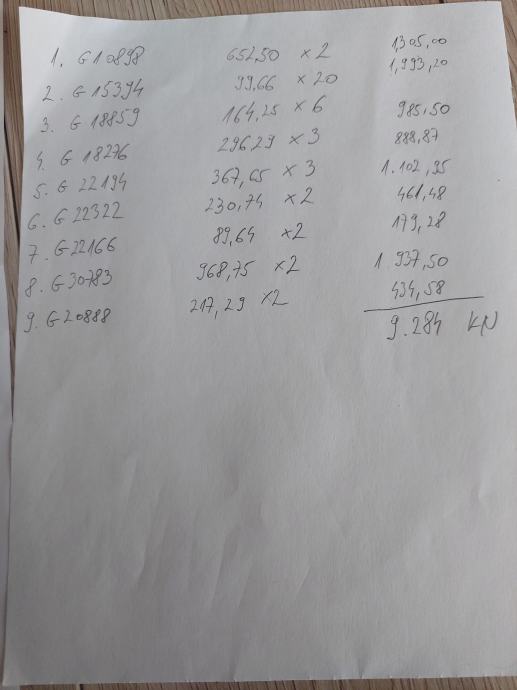 1. G10898 652,50 x 2 1,305,00
2. G 15394 99,66 x 20 1,993,20
3. G 18859 164,25 x 6 985,50
4. G 18276 296,29 x 3 888,87
5. G 22194 367,65 x 3 1.102,95
6. G 22322 230,74 x 2 461,48
7. G22166 89,64 x2 179,28
8. G30783 968,75 x 2 1 937,50
9. G20888 217,29 x2 434,58
9.284 KN